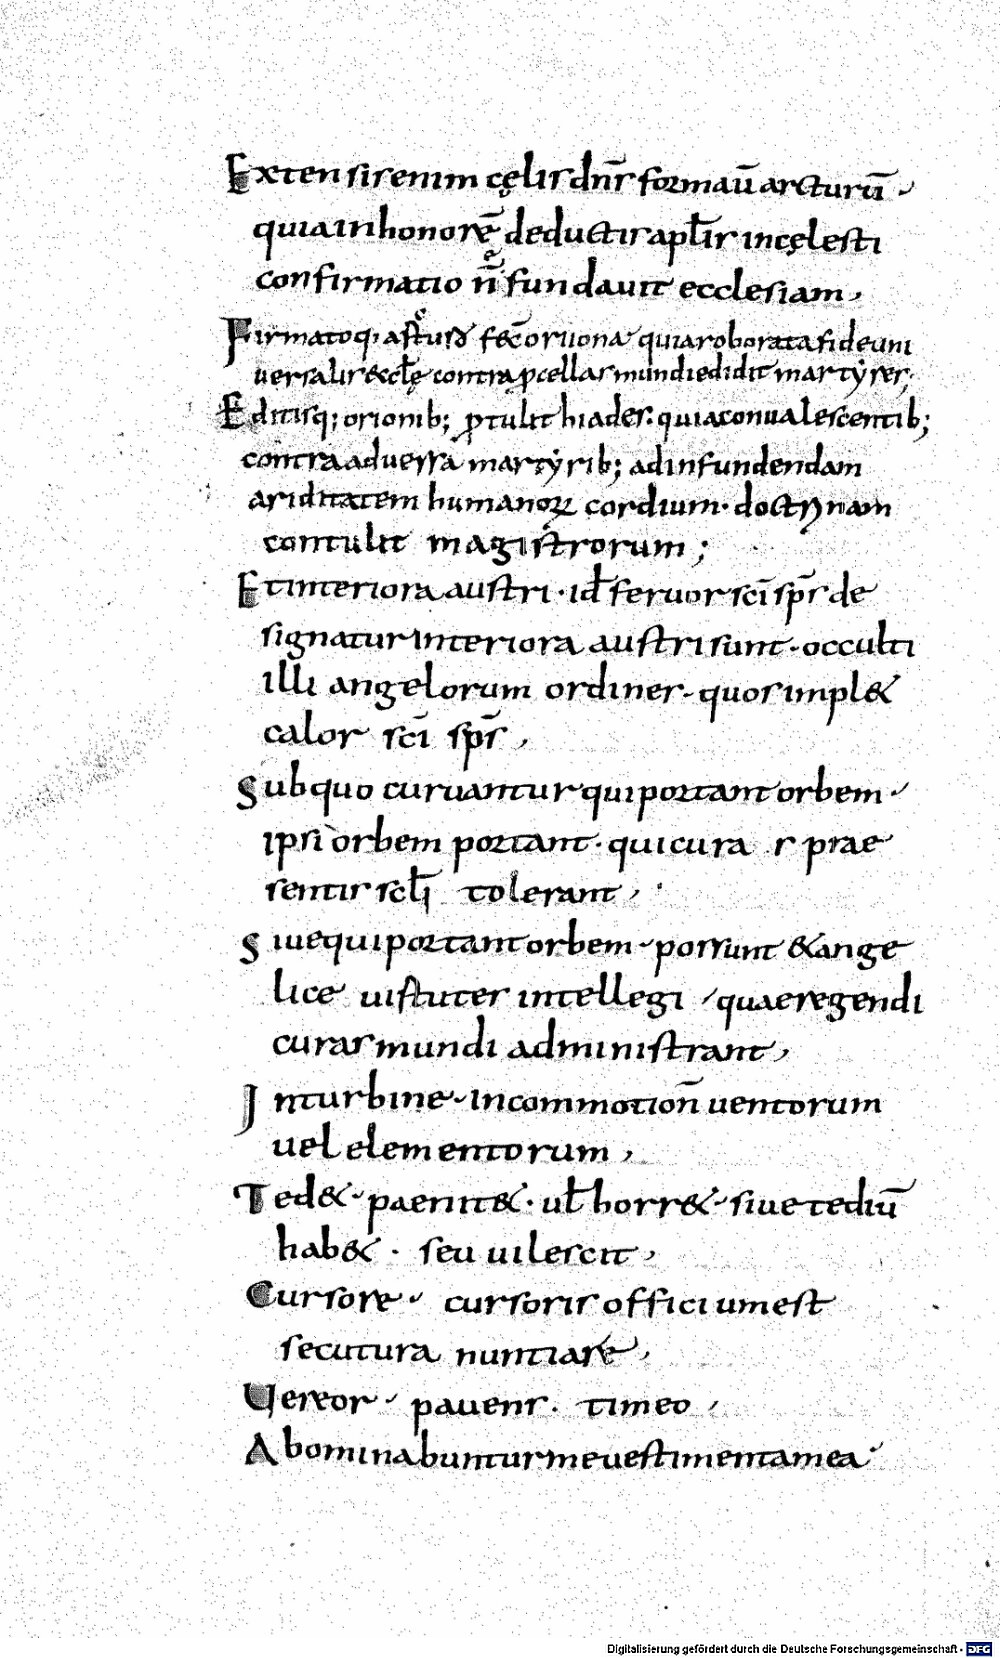 Extensis enim cęlis dn̄s formaū arcturū ·
quia in honorē deductis apłis in cęlesti
confirmatio n̄ fundauit ecclesiam,
Firmatoq; arcturo fec̄ oriona quia roborata fide uni
uersalis &ctę contra pcellas mundi edidit martẏres;
Editisq; orionib; ptulit hiades. quia conualescentib;
contra aduersa martẏrib; ad infundendam
ariditatem humanoꝝ cordium · doctrinam
contulit magistrorum ;
Et interiora austri · id̄ feruor sc̄i sp̄s de
signatur interiora austri sunt · occulti
illi angelorum ordines · quos impl&
calor sc̄i sp̄s ,
Sub quo curuantur qui portant orbem ·
ipsi orbem portant · qui cura s prae
sentis scłi tolerant ,
Siue qui portant orbem · possunt & ange
lice uistutes intellegi · quae regendi
curas mundi administrant ,
In turbine · In commotion̄ uentorum
uel elementorum ,
Ted& · paenit& · uł horr& · siue tediū
hab& · seu uilescit ,
Cursore · cursoris officium est
secutura nuntiare ,
Uereor · pauens · timeo ,
Abominabuntur me uestimenta mea ·
Digitalisierung gefördert durch die Deutsche Forschungsgemeinschaft - DFG